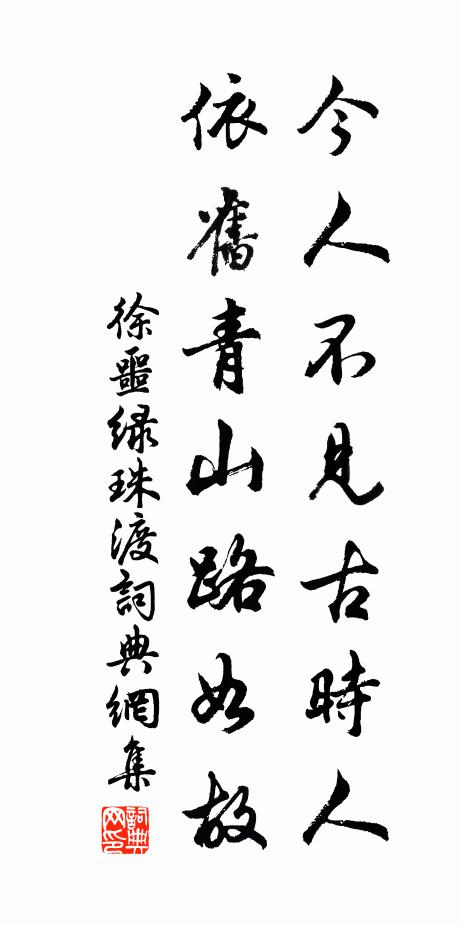 今人不見古時人
依舊青山路如故
徐噩緑珠渡詞典網集
詞典網印